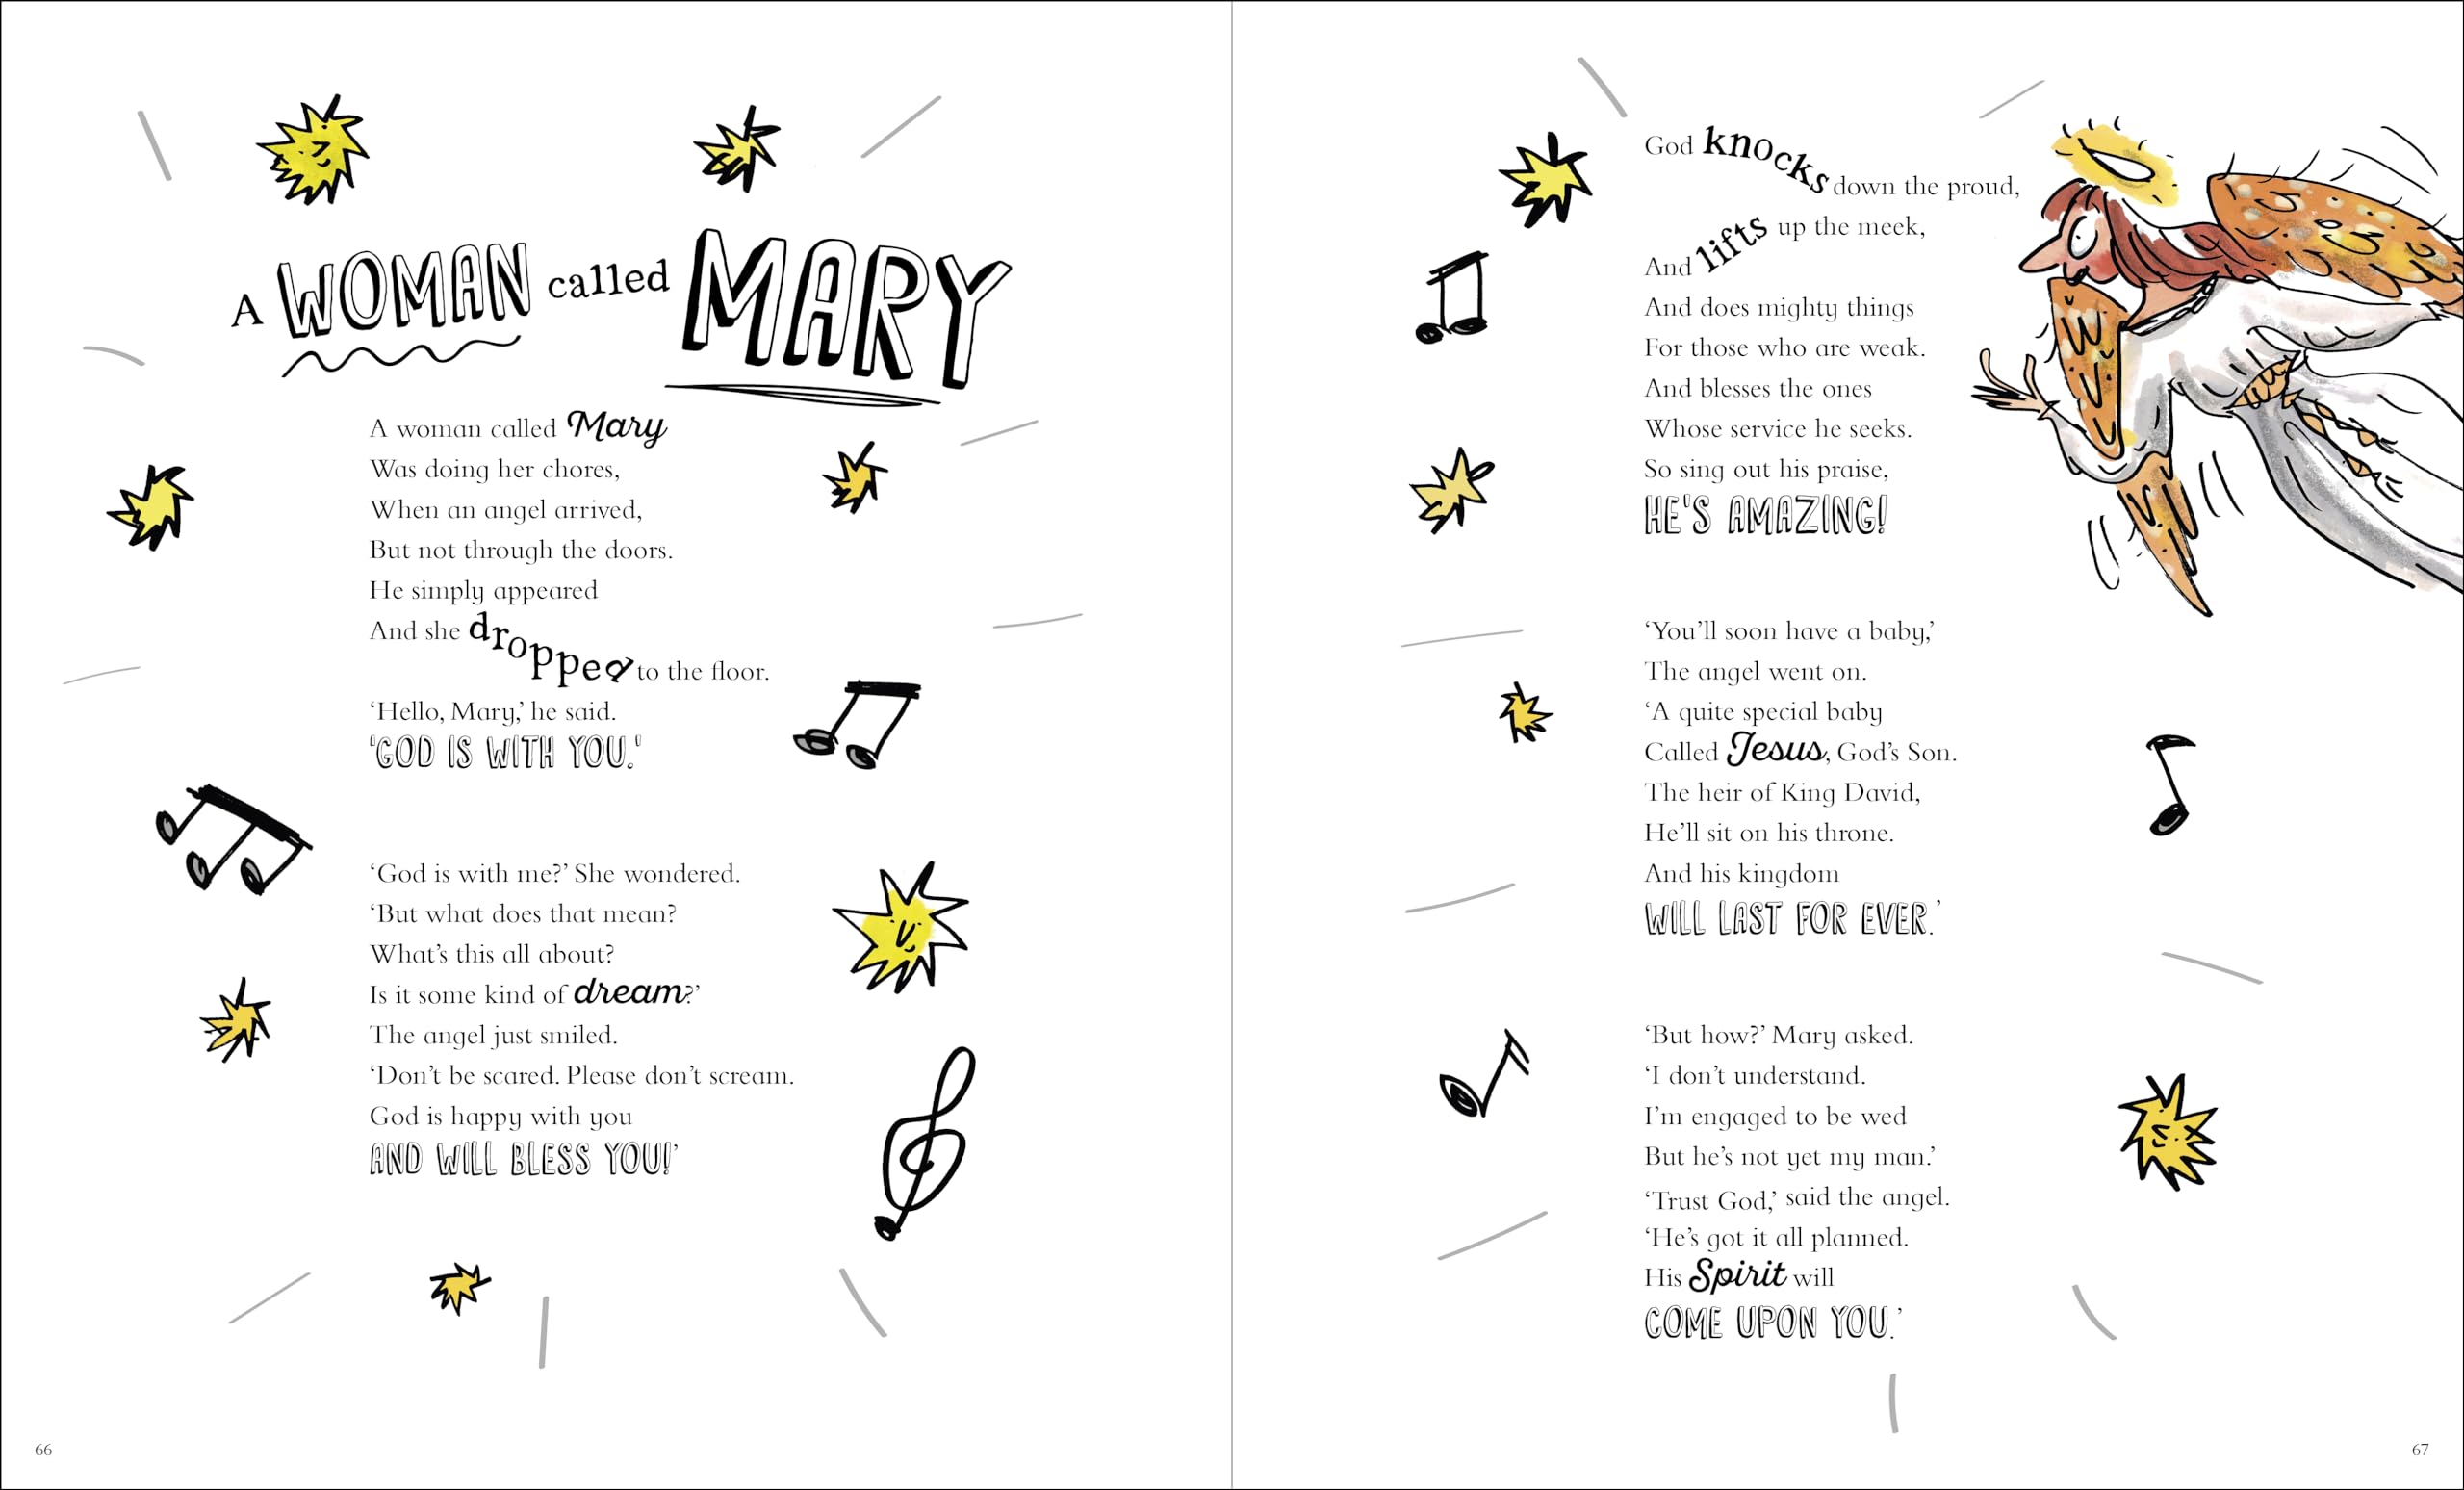 A WOMAN called MARY
A woman called Mary
Was doing her chores,
When an angel arrived,
But not through the doors.
He simply appeared
And she dropped to the floor.
‘Hello, Mary,’ he said.
‘GOD IS WITH YOU.’
‘God is with me?’ She wondered.
‘But what does that mean?
What’s this all about?
Is it some kind of dream?’
The angel just smiled.
‘Don’t be scared. Please don’t scream.
God is happy with you
AND WILL BLESS YOU!’
66
God knocks down the proud,
And lifts up the meek,
And does mighty things
For those who are weak.
And blesses the ones
Whose service he seeks.
So sing out his praise,
HE'S AMAZING!
‘You’ll soon have a baby,’
The angel went on.
‘A quite special baby
Called Jesus, God’s Son.
The heir of King David,
He’ll sit on his throne.
And his kingdom
WILL LAST FOR EVER.’
‘But how?’ Mary asked.
‘I don’t understand.
I’m engaged to be wed
But he’s not yet my man.’
‘Trust God,’ said the angel.
‘He’s got it all planned.
His Spirit will
COME UPON YOU.’
67